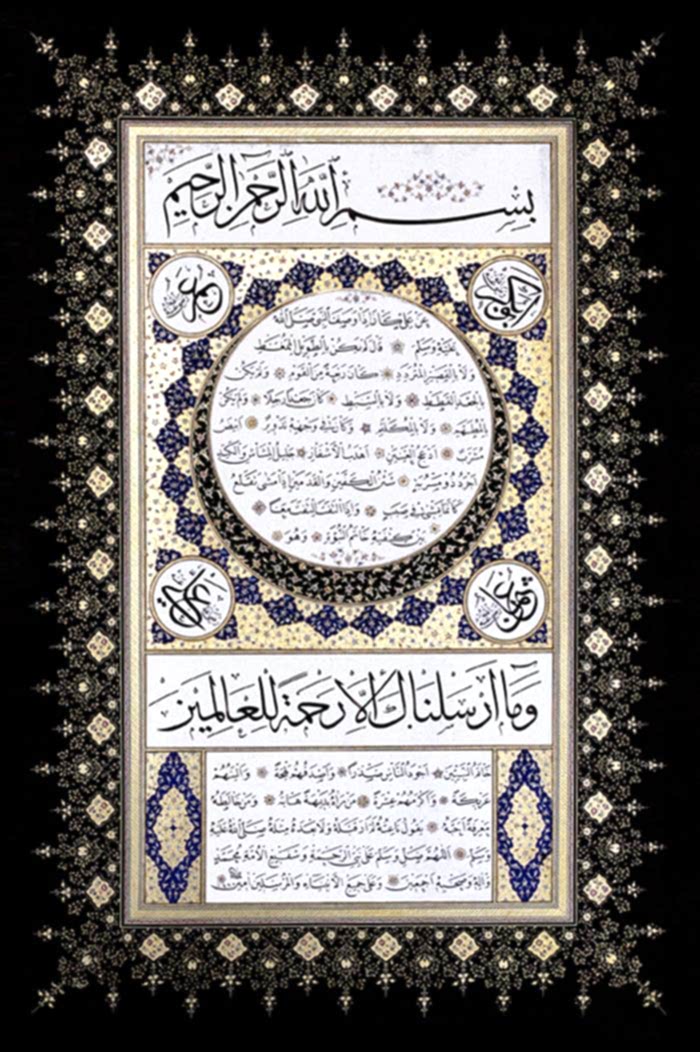 بِسْمِ اللّٰهِ الرَّحْمٰنِ الرَّحِيمِ
ابوبكر
عمر
عن علي كان اذا وصف النبي صلى الله
عليه وسلم قال لم يكن بالطويل الممغط
ولا بالقصير المتردد كان ربعة من القوم ولم يكن
بالجعد القطط ولا بالسبط كان جعدا رجلا ولم يكن
بالمطهم ولا بالمكلثم وكان في وجهه تدوير ابيض
مشرب ادعج العينين اهدب الاشفار جليل المشاش والكتد
اجرد ذو مسربة شثن الكفين والقدمين اذا مشى تقلع
كانما يمشي في صبب واذا التفت التفت معا
بين كتفيه خاتم النبوة وهو
عثمان
علي
وَمَا اَرْسَلْنَاكَ اِلَّا رَحْمَةً لِلْعَالَمِينَ
خاتم النبيين اجود الناس صدرا واصدقهم لهجة والينهم
عريكة واكرمهم عشرة من رآه بديهة هابه ومن خالطه
معرفة احبه يقول ناعته لم ار قبله ولا بعده مثله صلى الله عليه
وسلم اللهم صل وسلم على نبي الرحمة وشفيع الامة محمد
وآله وصحبه اجمعين وعلى جميع الانبياء والمرسلين آمين